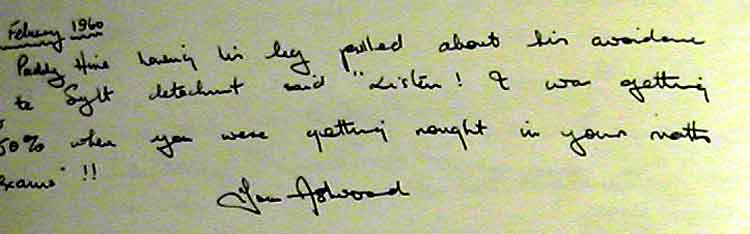 February 1960
Paddy Hine having his leg pulled about his avoidance
to Sylt detachment said "Listen! I was getting
50% when you were getting nought in your maths
Exams" !!
Ashwood